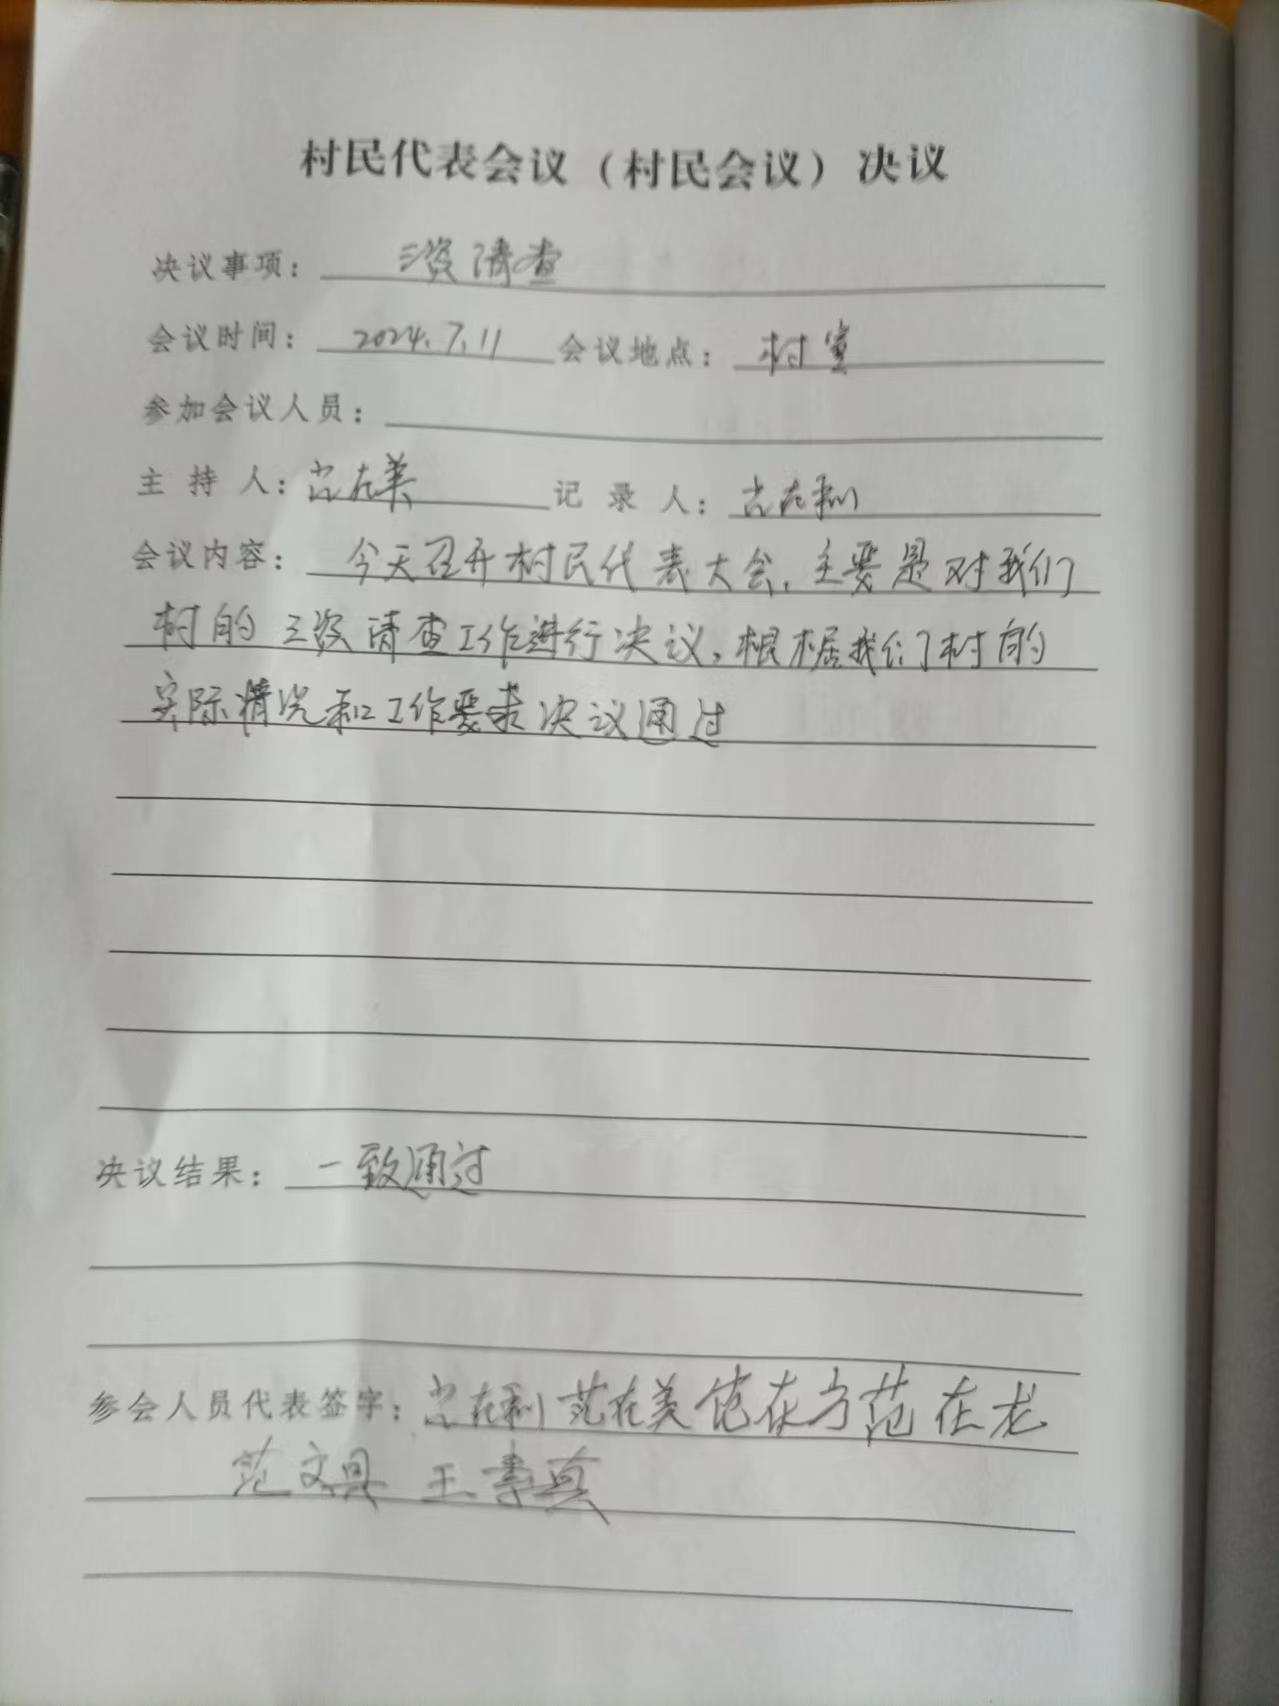 村民代表会议（村民会议）决议
决议事项： 三资清查
会议时间： 2024.7.11 会议地点： 村室
参加会议人员：
主持人： 范在美 记录人： 范在利
会议内容： 今天召开村民代表大会，主要是对我们
村的三资清查工作进行决议，根据我们村的
实际情况和工作要求决议通过
决议结果： 一致通过
参会人员代表签字： 范在利 范在美 范在方 范在龙
范文具 王寿真